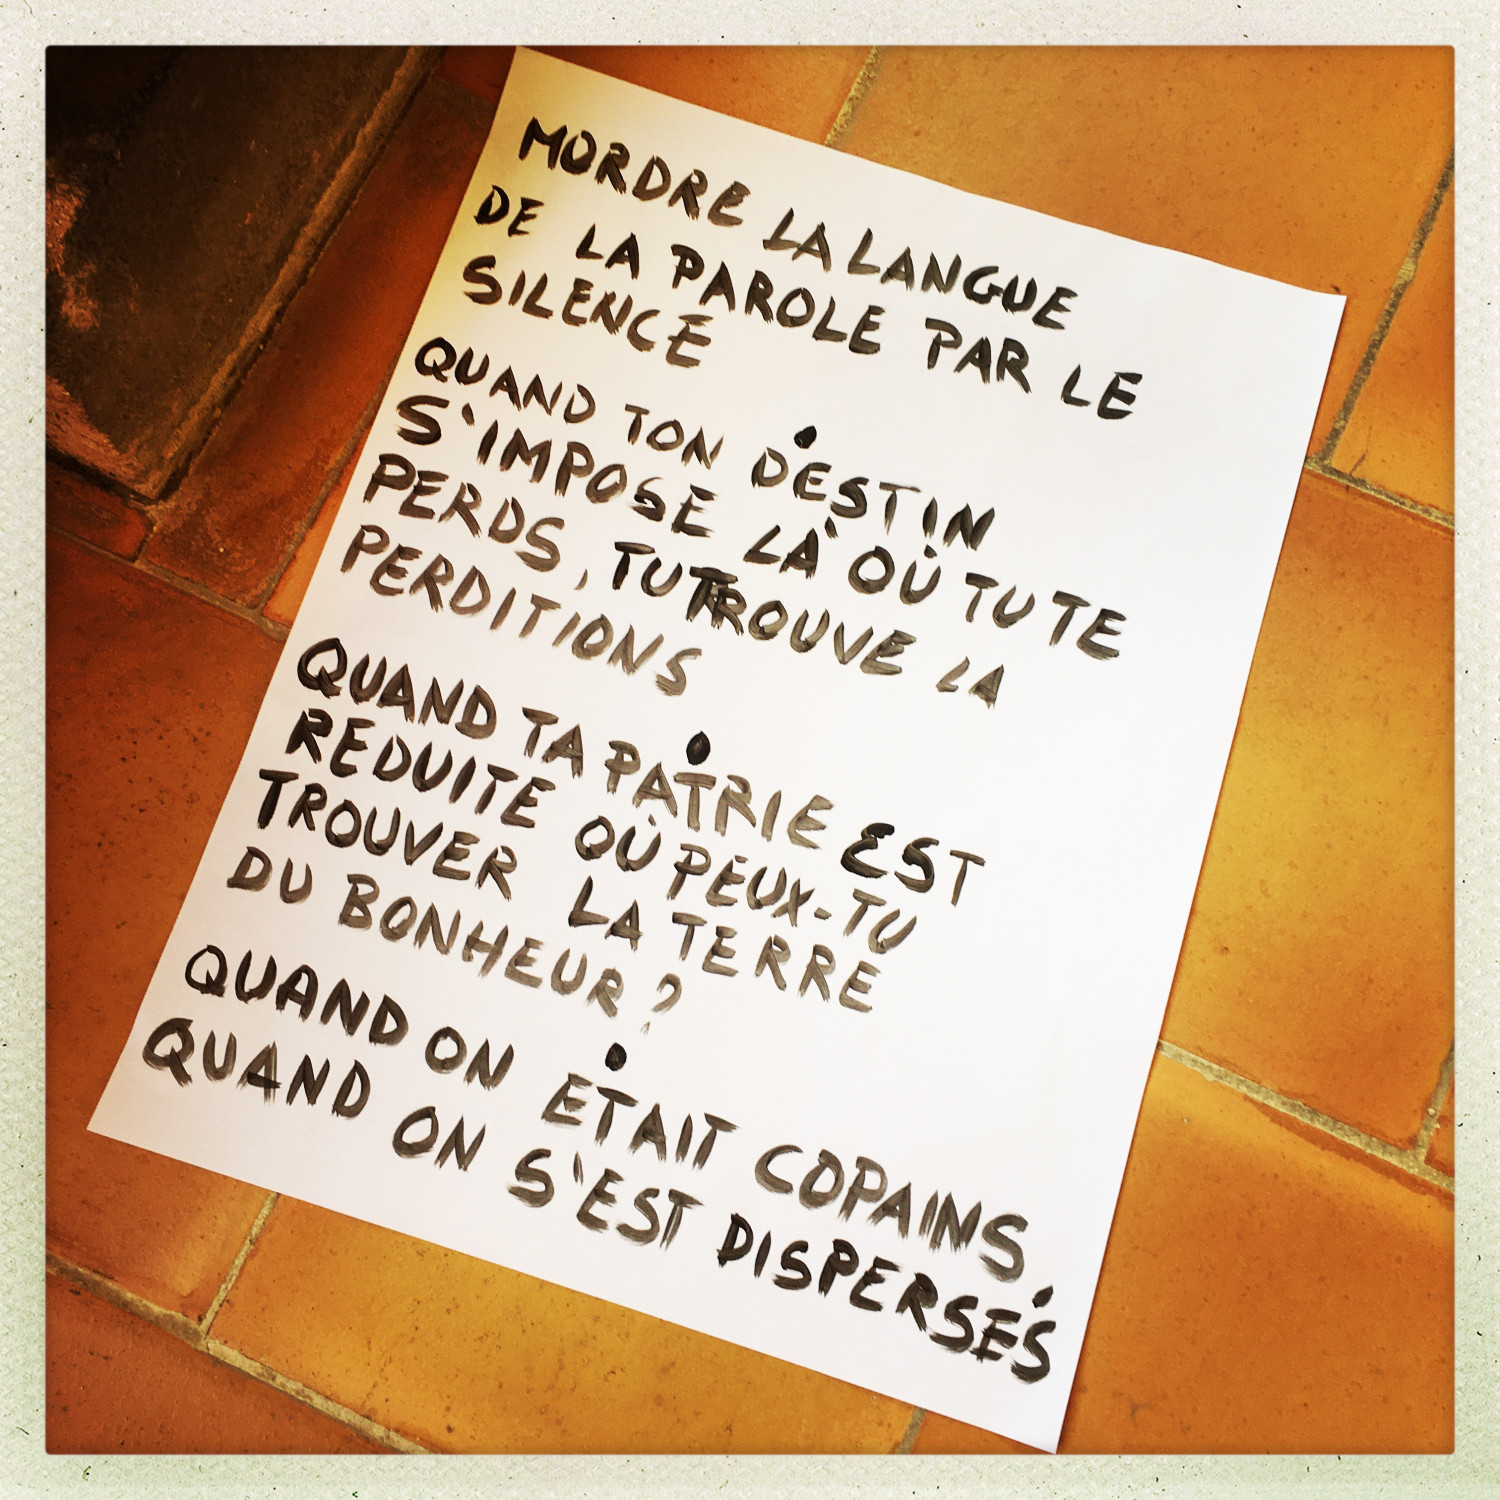 MORDRE LA LANGUE
DE LA PAROLE PAR LE
SILENCE
•
QUAND TON DESTIN
S'IMPOSE LÀ OÙ TU TE
PERDS, TU TROUVE LA
PERDITIONS
•
QUAND TA PATRIE EST
REDUITE OÙ PEUX-TU
TROUVER LA TERRE
DU BONHEUR ?
•
QUAND ON ETAIT COPAINS
QUAND ON S'EST DISPERSÉS